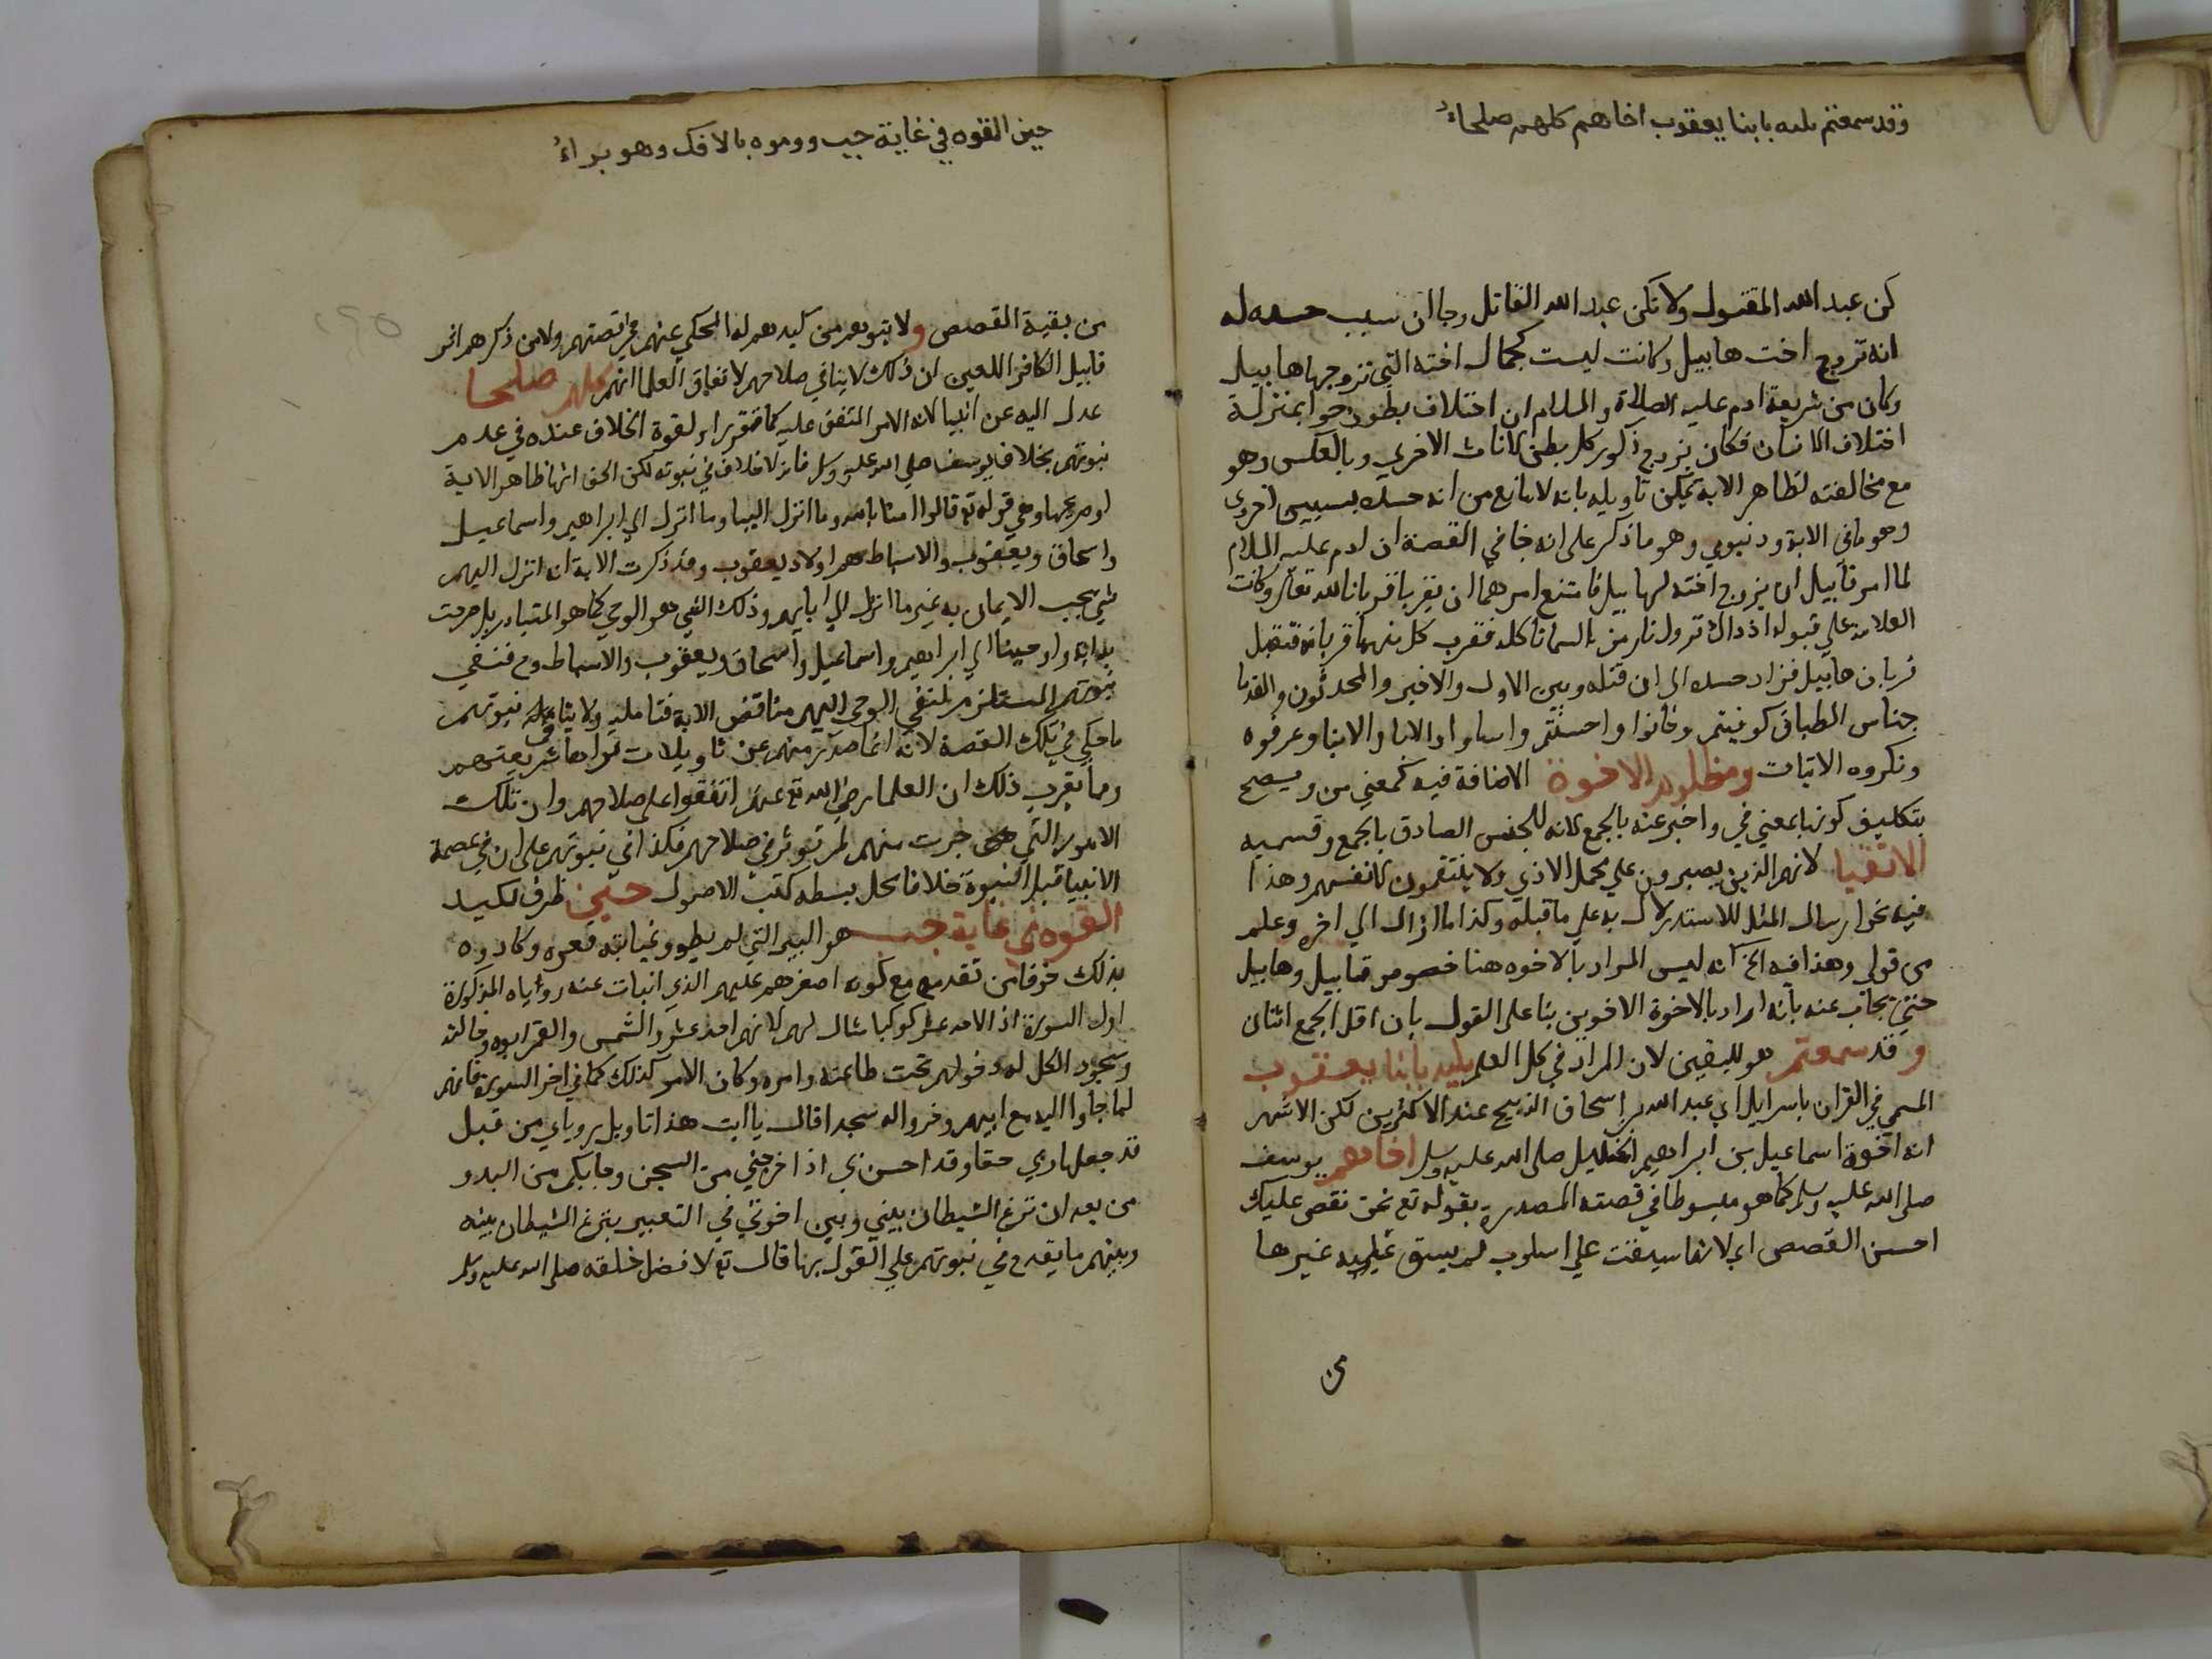 وقد سمعتم بليه بابنا يعقوب اخاهم كلهم صلحاء
كن عبد الله المقتول ولا تكن عبد الله القاتل وجا ان سبب حسده له
انه تزوج اخت هابيل وكانت ليست كجمال اخته التي تزوجها هابيل
وكان من شريعة ادم عليه الصلاة والسلام ان اختلاف بطون حوا بمنزلة
اختلاف الانسان فكان يزوج ذكور كل بطن لاناث الاخري وبالعكس وهو
مع مخالفته لظاهر الاية يمكن تاويله بانه لا مانع من انه حسده لسببين اخروي
وهو ما في الاية ودنيوي وهو ما ذكر على انه جا في القصة ان ادم عليه السلام
لما امر قابيل ان يزوج اخته لهابيل فامتنع امرهما ان يقربا قربانا لله تعالى وكانت
العلامة علي قبوله اذ ذاك نزول نار من السما تاكله فقرب كل منهما قربانه فتقبل
قربان هابيل فزاد حسده الى ان قتله وبين الاول والاخير والمحدثون والقدما
جناس الطباق كوفيتم وخانوا واحسنتم واساوا والابا والابنا وعرفوه
ونكروه الاثبات ومظلوم الاخوة الاضافة فيه بمعني من ويصح
بتكليف كونها بمعني في واخبر عنه بالجمع لانه للجنس الصادق بالجمع وقسميه
الاتقيا لانهم الذين يصبرون علي تحمل الاذي ولا ينتقمون لانفسهم وهذا
فيه نحو ارسال المثل للاستدلال به علي ما قبله وكذا ما ازال الي اخره وعلم
من قولي وهذا فيه الخ انه ليس المراد بالاخوه هنا خصوص قابيل وهابيل
حتي يجاب عنه بانه اراد بالاخوة الاخوين بنا على القول بان اقل الجمع اثنان
وقد سمعتم هو لليقين لان المراد في كل العلم بليه بابنا يعقوب
المسمي في القران باسرايل اي عبد الله بن اسحاق الذبيح عند الاكثرين لكن الاشهر
انه اخوه اسماعيل بن ابراهيم الخليل صلى الله عليه وسلم اخاهم يوسف
صلى الله عليه وسلم كما هو مبسوطا في قصته المصدرة بقوله تع نحن نقص عليك
احسن القصص اي لانها سيقت علي اسلوب لم يسق عليه غيرها
من
حين القوه في غيابة جب ورموه بالافك وهو براء
من بقية القصص ولا يتوهم من كيدهم له المحكي عنهم في قصتهم ولا من ذكرهم اثر
قابيل الكافر اللعين ان ذلك لا ينافي صلاحهم لاتفاق العلما انهم كلهم صلحا
عدل اليه عن انبيا لانه الامر المتفق عليه كما تقرر او لقوة الخلاف عنده في عدم
نبوتهم بخلاف يوسف صلى الله عليه وسلم فانه لا خلاف في نبوته لكن الحق انها ظاهر الاية
او صريحها وهي قوله تع قالوا امنا بالله وما انزل الينا وما انزل الي ابراهيم واسماعيل
واسحاق ويعقوب والاسباط هم اولاد يعقوب وقد ذكرت الاية انه انزل اليهم
شي يجب الايمان به غير ما انزل الي ابايهم وذلك الشي هو الوحي كما هو المتبادر بل صرحت
به اية واوحينا الي ابراهيم واسماعيل واسحاق ويعقوب والاسباط وح فنفي
نبوتهم المستلزم لنفي الوحي اليهم مناقض الاية فتامليه ولا ينافي نبوتهم
ما حكي في تلك القصة لانه انما صدر منهم عن تاويلات
ومما يقرب ذلك ان العلما رضي الله تع عنهم اتفقوا على صلاحهم وان تلك
الامور التي جرت منهم لم توثر في صلاحهم فكذا في نبوتهم على ان في عصمة
الانبيا قبل النبوة خلافا محل بسطه كتب الاصول حين ظرف لكيد
القوه في غيابة جب هو البير التي لم يطو وغيابته قعره وكادوه
بذلك خوفا من تقدمه مع كونه اصغرهم عليهم الذي انبات عنه روياه المذكورة
اول السورة اذ الاحد عشر كوكبا مثال لهم لانهم احد عشر والشمس والقمر ابوه وخالته
وسجود الكل له دخولهم تحت طاعته وامره وكان الامر كذلك كما في اخر السورة فانهم
لما جاوا اليه مع ابيهم وخروا له سجدا قال يا ابت هذا تاويل روياي من قبل
قد جعلها ربي حقا وقد احسن بي اذ اخرجني من السجن وجا بكم من البدو
من بعد ان نزغ الشيطان بيني وبين اخوتي في التعبير بنزغ الشيطان بينه
وبينهم ما يقدح في نبوتهم علي القول بها قال تع لافضل خلقه صلى الله عليه وسلم